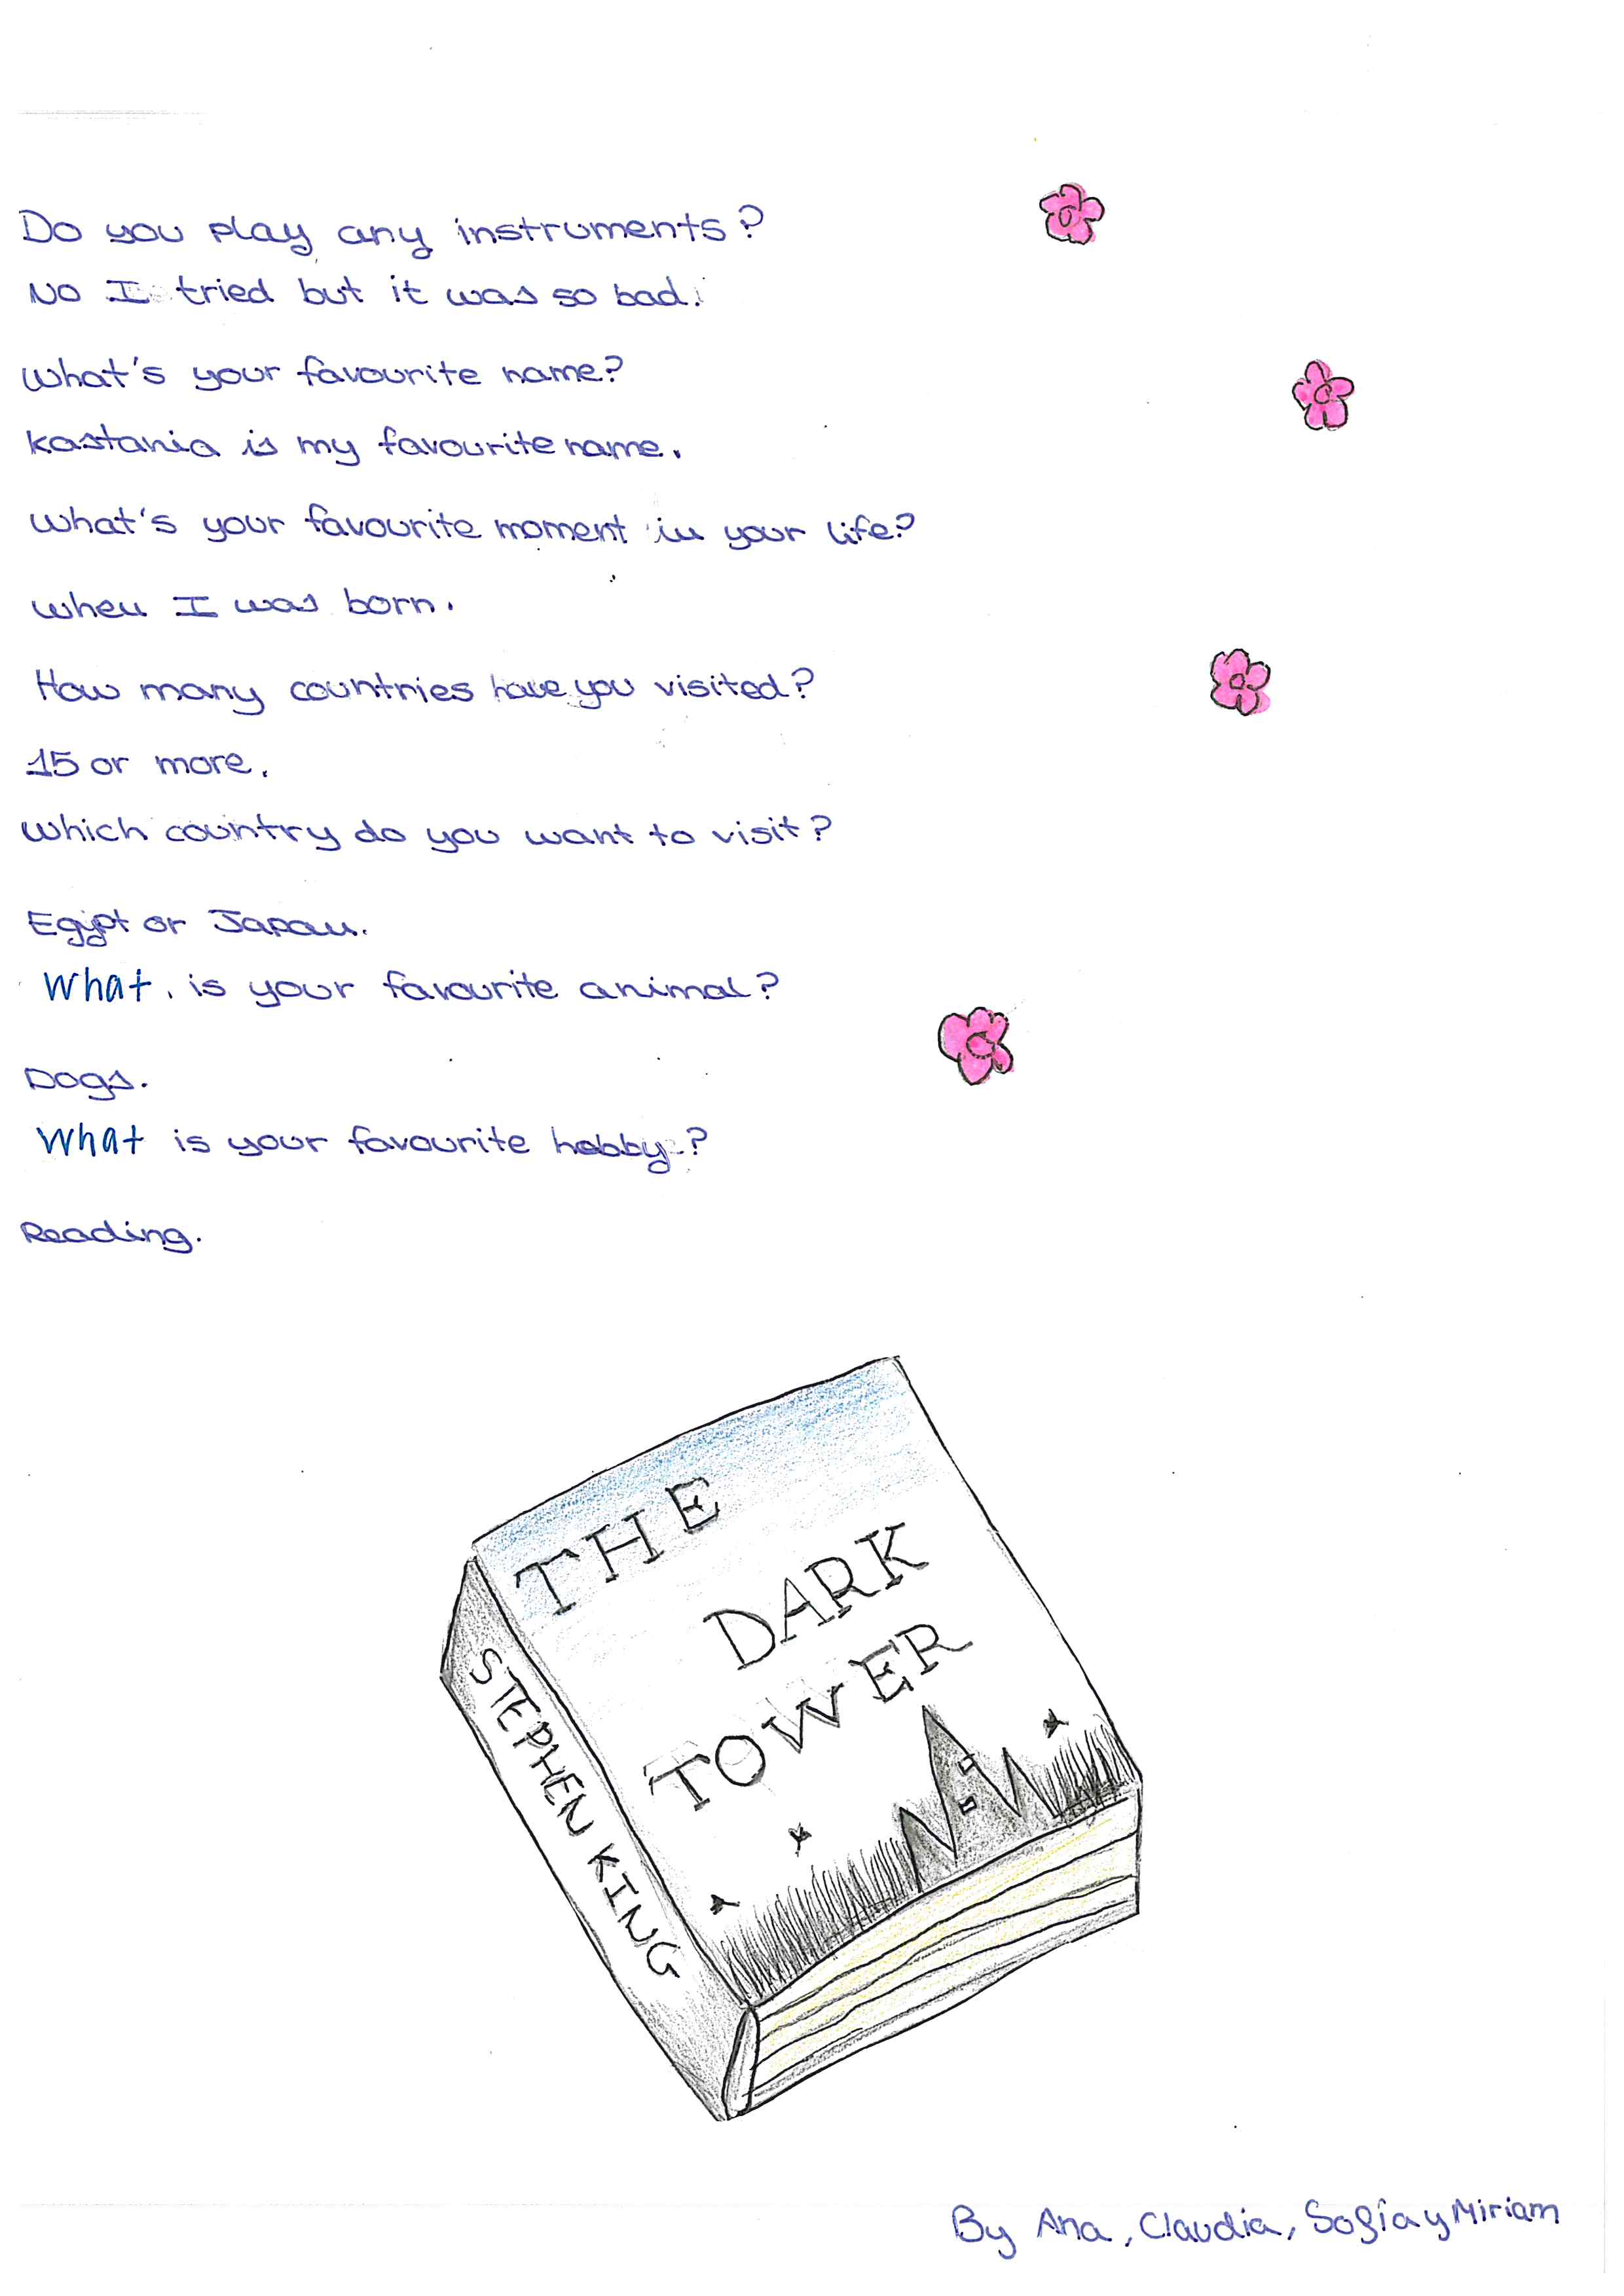 Do you play any instruments?
No I tried but it was so bad.
What's your favourite name?
Kastania is my favourite name.
What's your favourite moment in your life?
When I was born.
How many countries have you visited?
15 or more.
Which country do you want to visit?
Egypt or Japan.
What is your favourite animal?
Dogs.
What is your favourite hobby?
Reading.
THE
DARK
TOWER
STEPHEN KING
By Ana, Claudia, Sofía y Miriam